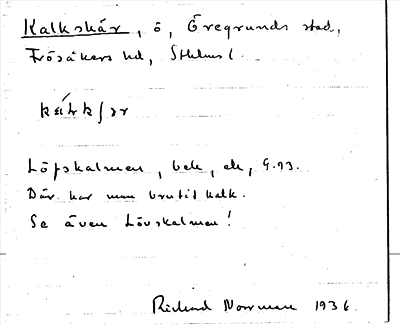 Kalkskär, ö, Öregrunds stad,
Frösåkers hd, Sthlms l.
Löpskalmen, bek, ek, G.93.
Där har man brutit kalk.
Se även Lövskalmen!
Richard Norrman 1936.